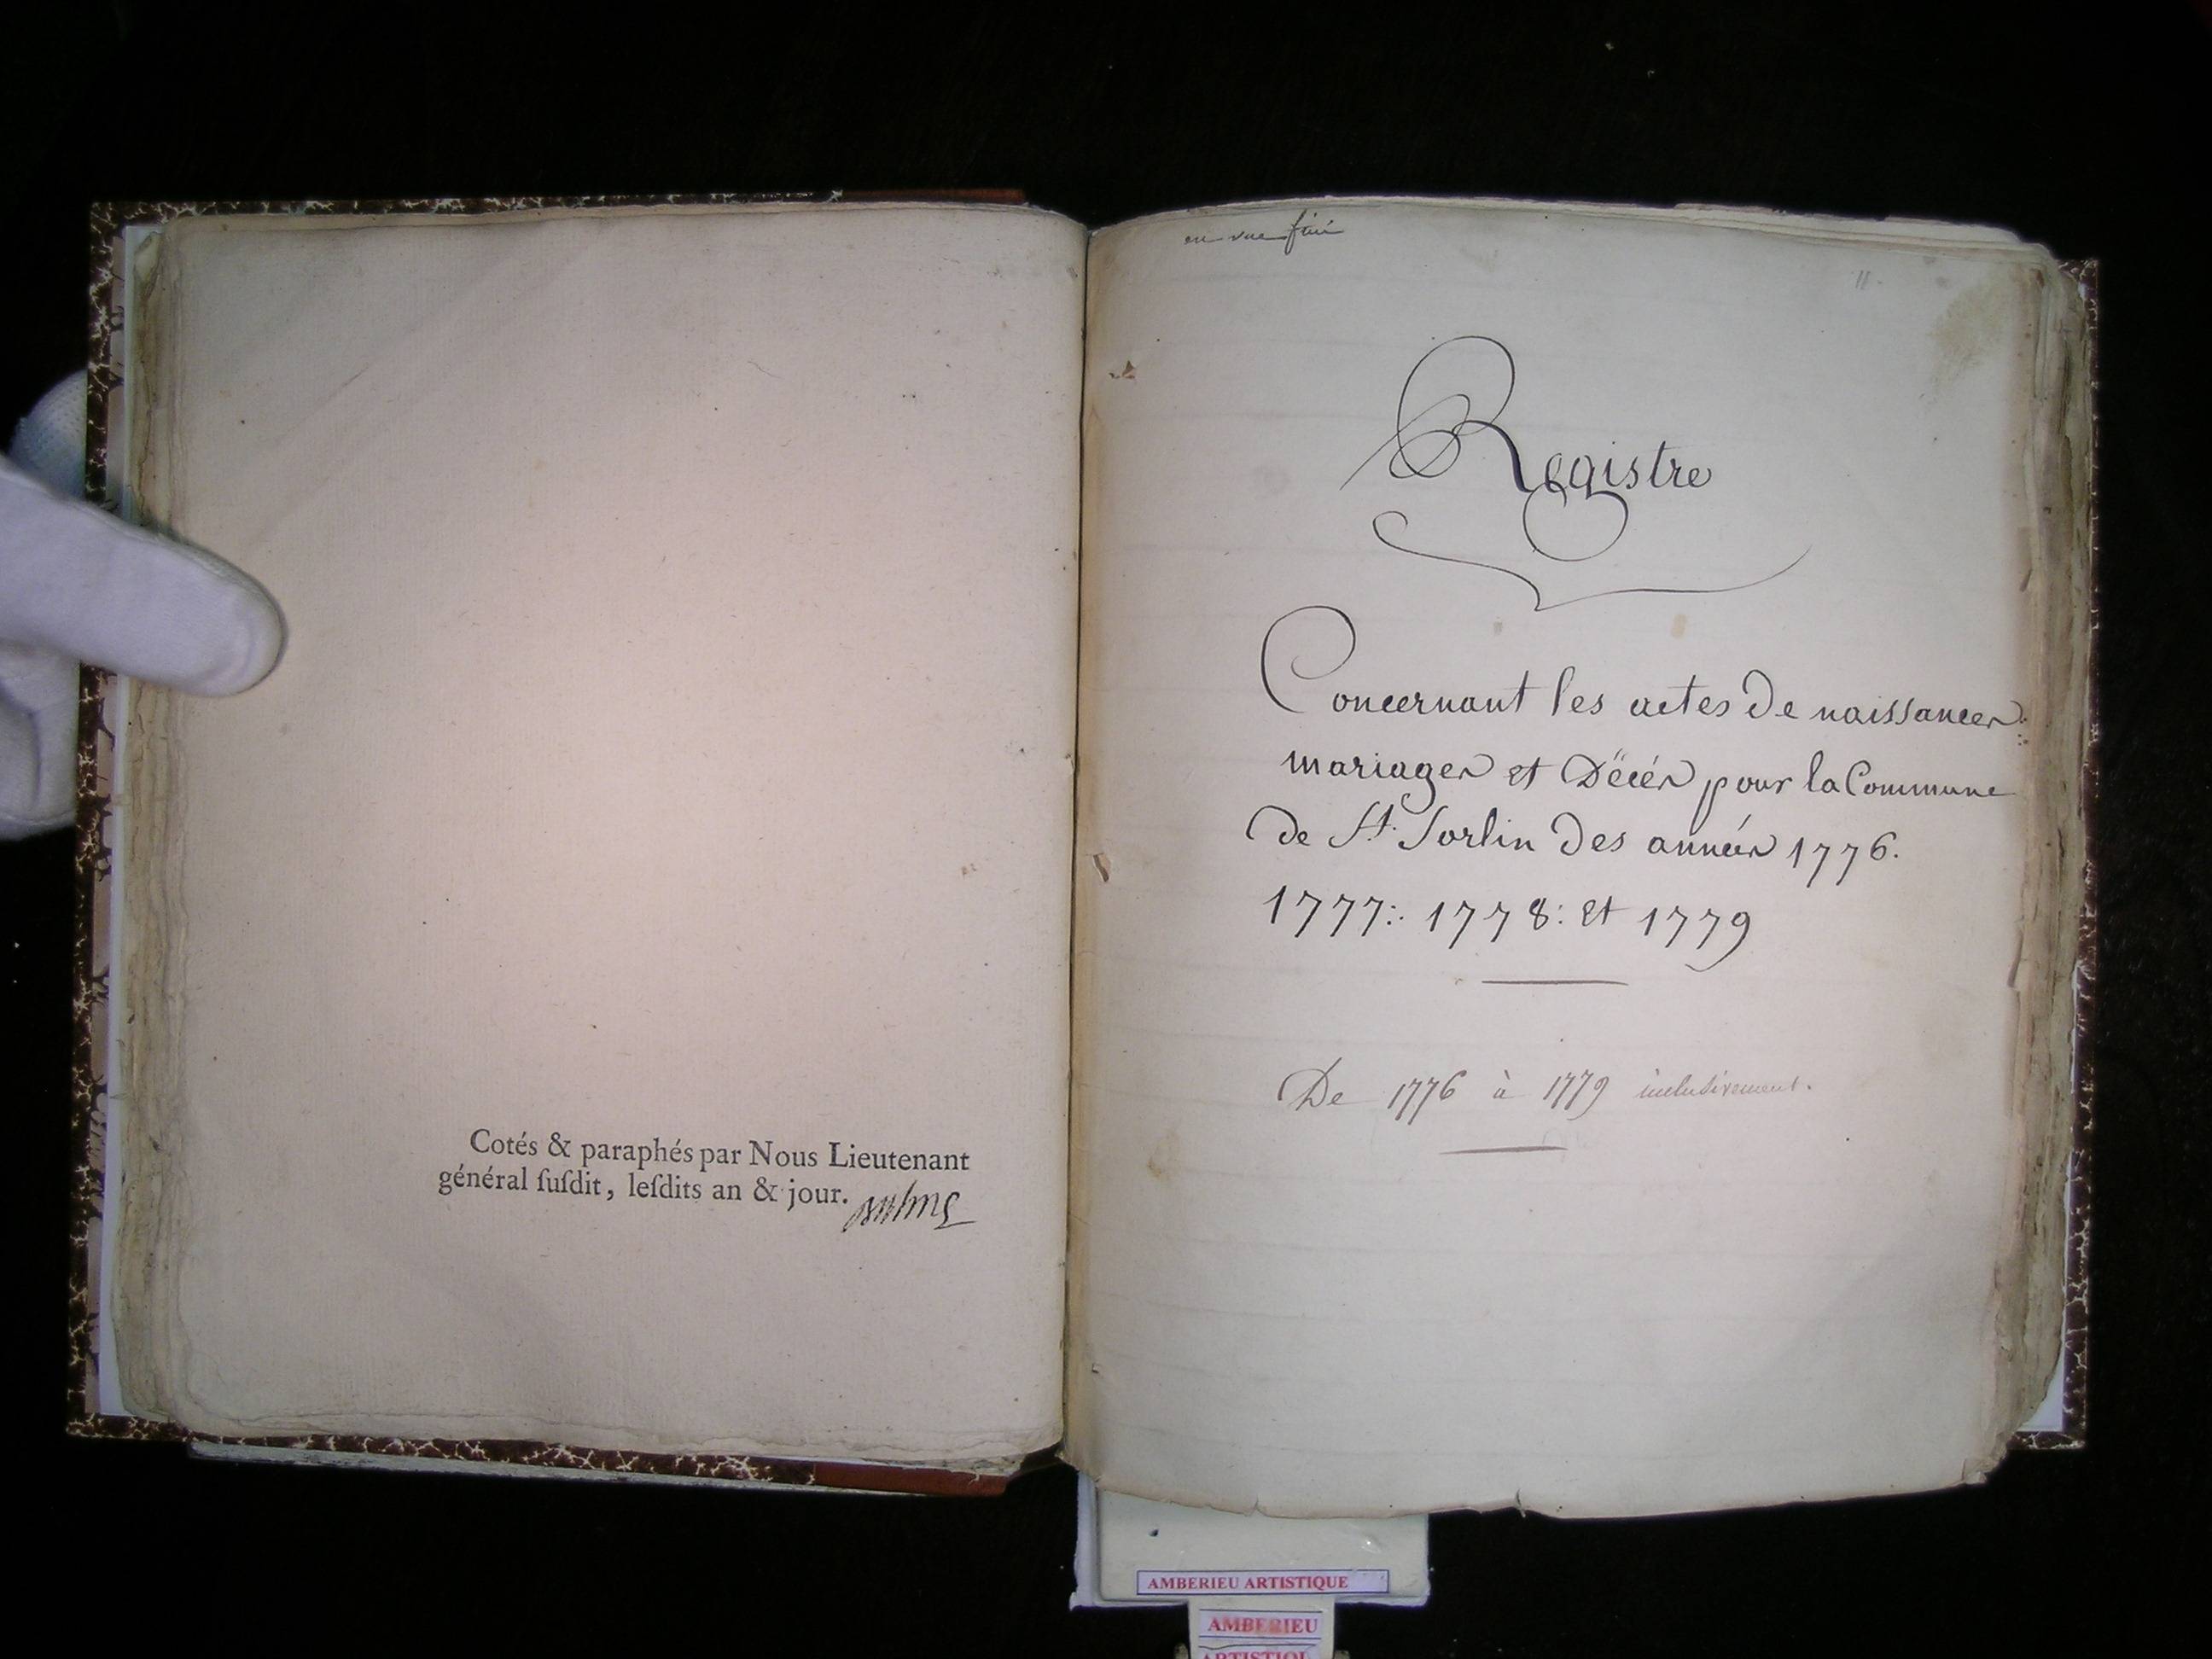 Cotés & paraphés par Nous Lieutenant
général ſuſdit, leſdits an & jour.
Registre
Concernant les actes de naissances
mariages et Décés pour la Commune
de St. Sorlin des années 1776.
1777: 1778: et 1779
De 1776 à 1779 inclusivement.
AMBERIEU ARTISTIQUE
AMBERIEU